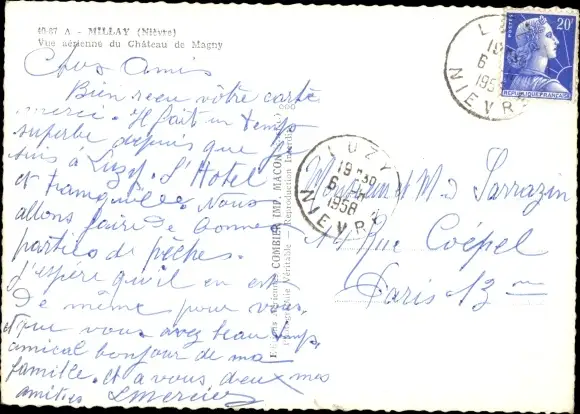 40-67 A - MILLAY (Nièvre)
Vue aérienne du Château de Magny
Chers Amis
Bien reçu vôtre carte
merci. Il fait un temps
superbe depuis que je
suis à Luzy. L'Hotel
et tranquille. Nous
allons faire de bonnes
parties de pêches.
J'espère qu'il en est
de même pour vous,
et que vous avez beau temps
amical bonjour de ma
famille. et a vous deux mes
amitiés Lmercier
COMBIER IMP. MACON
Véritable - Reproduction Interdite
LUZY
19 H30
6
1958
NIEVRE
L
19
6
195
NIEVRE
POSTES
20F
REPUBLIQUE FRANÇAISE
Monsieur et Mme Sarrazin
14 Rue Coëpel
Paris 13me